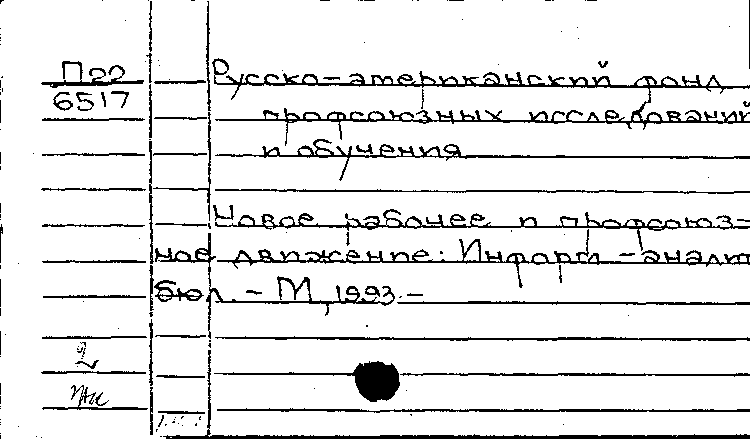 П22
6517
Русско-американский фонд
профсоюзных исследований
и обучения
Новое рабочее и профсоюз-
ное движение: Информ-аналит
бюл. - М, 1993.-
2